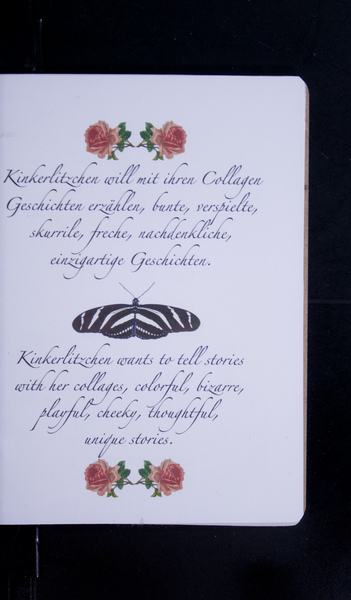 Kinkerlitzchen will mit ihren Collagen
Geschichten erzählen, bunte, verspielte,
skurrile, freche, nachdenkliche,
einzigartige Geschichten.
Kinkerlitzchen wants to tell stories
with her collages, colorful, bizarre,
playful, cheeky, thoughtful,
unique stories.